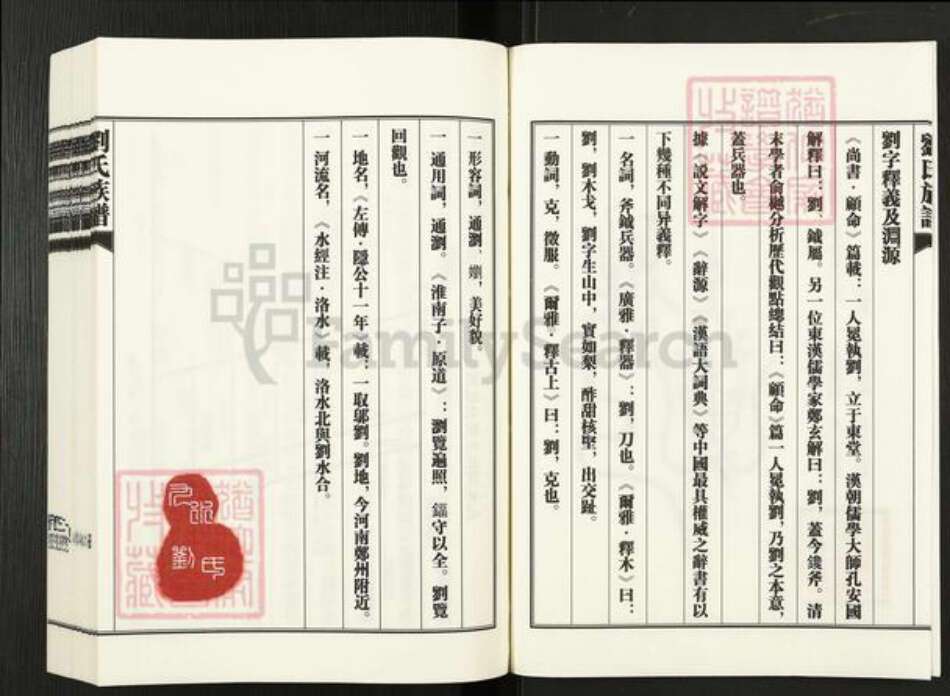 劉氏族譜
劉字釋義及淵源
《尚書·顧命》篇載：一人冕執劉，立于東堂。漢朝儒學大師孔安國
解釋曰：劉，鉞屬。另一位東漢儒學家鄭玄解曰：劉，蓋今鑱斧。清
末學者俞樾分析歷代觀點總結曰：《顧命》篇一人冕執劉，乃劉之本意，
蓋兵器也。
據《說文解字》《辭源》《漢語大詞典》等中國最具權威之辭書有以
下幾種不同异義釋。
一名詞，斧鉞兵器。《廣雅·釋器》：劉，刀也。《爾雅·釋木》曰：
劉，劉木戈，劉字生山中，實如梨，酢甜核堅，出交趾。
一動詞，克，徵服。《爾雅·釋古上》曰：劉，克也。
一形容詞，通瀏、嬼，美好貌。
一通用詞，通瀏。《淮南子·原道》：瀏覽遍照，守以全。瀏覽
回觀也。
一地名，《左傳·隱公十一年》載：一取鄔劉。劉地，今河南鄭州附近。
一河流名，《水經注·洛水》載，洛水北與劉水合。
劉氏族譜
FamilySearch
劉氏